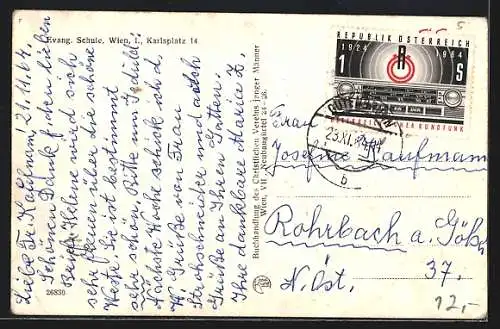 Evang. Schule, Wien, I., Karlsplatz 14
21.11.64.
Liebe Fr. Kaufmann!
Schönen Dank f. den lieben
Brief. Helene würde sich
sehr freuen über die schöne
Weste. Sie ist bestimmt
sehr schön. Bitte um Geduld.
Nächste Woche schick ich d.
W. Grüße von Frau
Strohschneider und auch
Grüße an Ihren Gatten.
Ihre dankbare Maria Z.
26836
Buchhandlung des Christlichen Vereins junger Männer
Wien, VII. Neubaugürtel 26
REPUBLIK ÖSTERREICH
1924 R 1964
1 S
ÖSTERREICHISCHER RUNDFUNK
23.XI.
b
Frau
Josefine Kaufmann
Rohrbach a. Gölsen
37.
N.Öst.
12,-
5